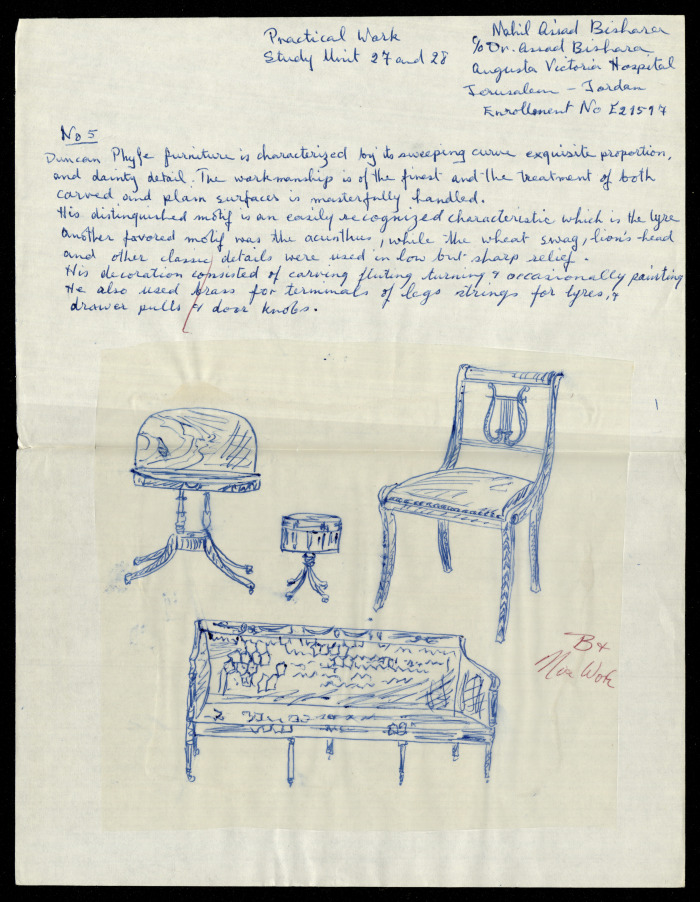 Practical Work
Study Unit 27 and 28
Mahil Assad Bishara
c/o Dr. Assad Bishara
Augusta Victoria Hospital
Jerusalem - Jordan
Enrollment No E21597
No 5
Duncan Phyfe furniture is characterized by its sweeping curve exquisite proportion,
and dainty detail. The workmanship is of the finest and the treatment of both
carved and plain surfaces is masterfully handled.
His distinguished motif is an easily recognized characteristic which is the lyre
another favored motif was the acunthus, while the wheat swag, lion's head
and other classic details were used in low but sharp relief.
His decoration consisted of carving fluting turning & occasionally painting
He also used brass for terminals of legs strings for lyres, &
drawer pulls & door knobs.
B+
Nice Work